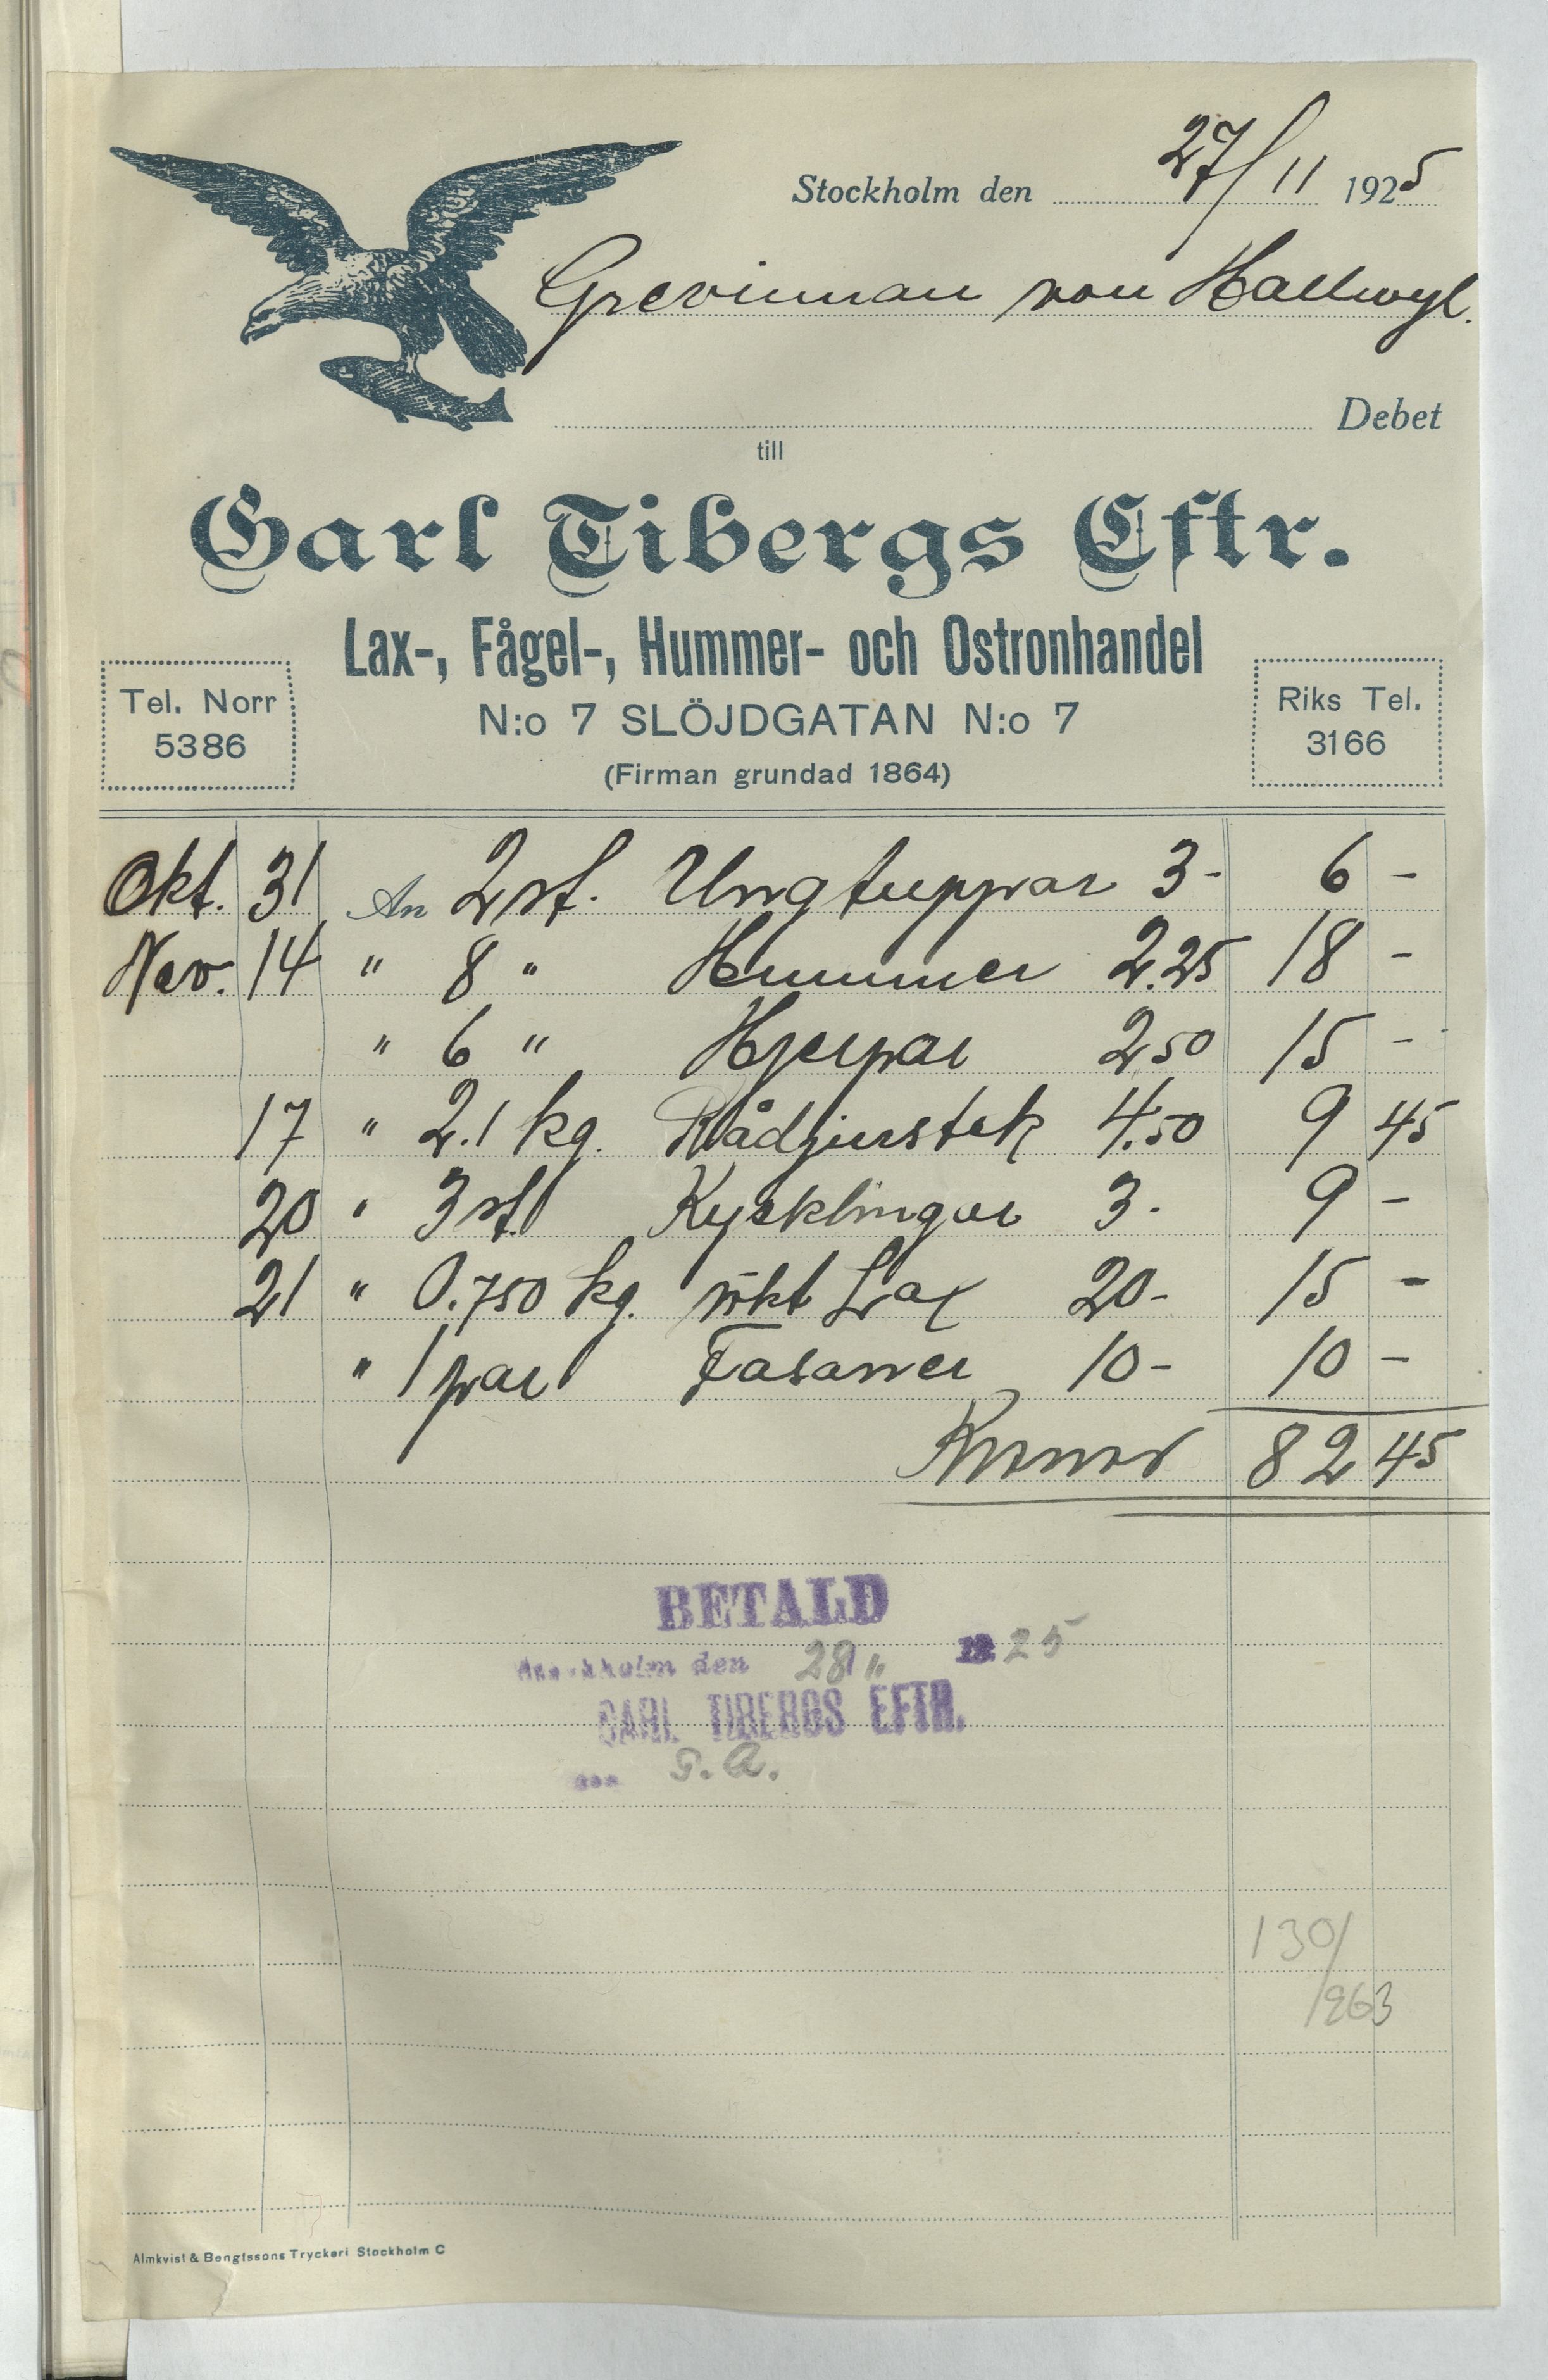 Stockholm den 27/11 1925
Grevinnan von Hallwyl.
Debet
till
Carl Tibergs Eftr.
Lax-, Fågel-, Hummer- och Ostronhandel
Tel. Norr
5386
N:o 7 SLÖJDGATAN N:o 7
(Firman grundad 1864)
Riks Tel.
3166
Okt. 31 An 2 st. Ungtuppar 3- 6 -
Nov. 14 " 8 " Hummer 2.25 18 -
" 6 " Hjerpar 2.50 15 -
17 " 2.1 kg. Rådjurstek 4.50 9 45
20 " 3 st. Kycklingar 3. 9 -
21 " 0.750 kg. rökt Lax 20- 15 -
" 1 par Fasaner 10- 10 -
Kronor 82 45
BETALD
Stockholm den 28/11 1925
CARL TIBERGS EFTR.
G. A.
130/
1263
Almkvist & Bengtssons Tryckeri Stockholm C